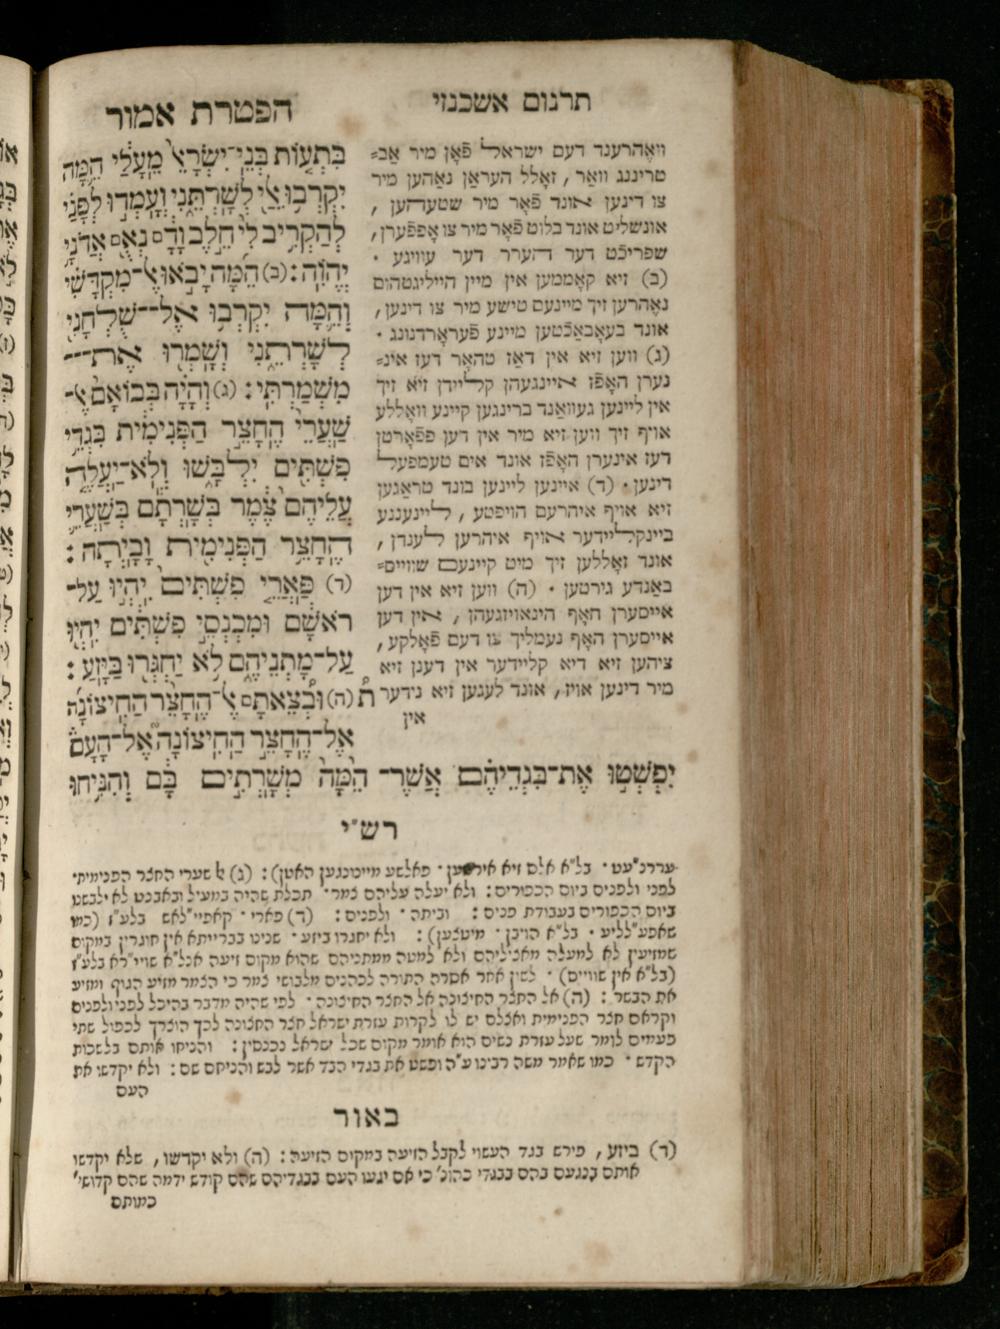 תרגום אשכנזי
הפטרת אמור
וואֶהרענד דעם ישראל פֿאָן מיר אַבֿ=
טריננג וואַר, זאָלל העראַן נאַהען מיר
צו דינען אונד פֿאָר מיר שטעדהען,
אונשליט אונד בלוט פֿאָר מיר צו אָפּפֿערן,
שפריכֿט דער הערר דער עוויגע.
(ב) זיא קאָממען אין מיין הייליגטהום
נאֶהרען זיך מיינעם טישע מיר צו דינען,
אונד בעאָבאַכֿטען מיינע פֿעראָרדנונג.
(ג) ווען זיא אין דאַז טהאָר דעז אינ=
נערן האָפֿז איינגעהן קליידן זיא זיך
אין ליינען געוואַנד ברינגען קיינע וואָללע
אויף זיך ווען זיא מיר אין דען פּפֿאָרטן
דעז אינערן האָפֿז אונד אים טעמפעל
דינען. (ד) איינען ליינען בונד טראַגען
זיא אויף איהרעם הויפטע, ליינעננע
ביינקליידער אויף איהרען לענדן,
אונד זאָללען זיך מיט קיינעם שווייס=
באַנדע גירטען. (ה) ווען זיא אין דען
אייסערן האָף הינאויזגעהן, אין דען
אייסערן האָף נעמליך צו דעם פֿאָלקע,
ציהען זיא דיא קליידער אין דענן זיא
מיר דינען אויז, אונד לעגען זיא נידער
אין
בִּתְעוֹת בְּנֵי־יִשְׂרָאֵל מֵעָלַי הֵמָּה
יִקְרְבוּ אֵלַי לְשָׁרְתֵנִי וְעָמְדוּ לְפָנַי
לְהַקְרִיב לִי חֵלֶב וָדָם נְאֻם אֲדֹנָי
יֱהוִֹה: (ב) הֵמָּה יָבֹאוּ אֶל־מִקְדָּשִׁי
וְהֵמָּה יִקְרְבוּ אֶל־שֻׁלְחָנִי
לְשָׁרְתֵנִי וְשָׁמְרוּ אֶת־
מִשְׁמַרְתִּי: (ג) וְהָיָה בְּבוֹאָם אֶל־
שַׁעֲרֵי הֶחָצֵר הַפְּנִימִית בִּגְדֵי
פִשְׁתִּים יִלְבָּשׁוּ וְלֹא־יַעֲלֶה
עֲלֵיהֶם צֶמֶר בְּשָׁרְתָם בְּשַׁעֲרֵי
הֶחָצֵר הַפְּנִימִית וָבָיְתָה:
(ד) פַּאֲרֵי פִשְׁתִּים יִהְיוּ עַל־
רֹאשָׁם וּמִכְנְסֵי פִשְׁתִּים יִהְיוּ
עַל־מָתְנֵיהֶם לֹא יַחְגְּרוּ בַּיָּזַע:
ת (ה) וּבְצֵאתָם אֶל־הֶחָצֵר הַחִיצוֹנָה
אֶל־הֶחָצֵר הַחִיצוֹנָה אֶל־הָעָם
יִפְשְׁטוּ אֶת־בִּגְדֵיהֶם אֲשֶׁר־הֵמָּה מְשָׁרְתִים בָּם וְהִנִּיחוּ
רש״י
בל״א אלס זיא פאלשע מיינונגען האטן): (ג) אל שערי החצר הפנימית.
לפני ולפנים ביום הכפורים: ולא יעלה עליהם צמר. תכלת שהיה במעיל ובאבנט לא ילבשו
ביום הכפורים בעבודת פנים: וביתה. ולפנים: (ד) פארי. קאפיי״לאש בלע״ז (כמו
בל״א הויבן. מיטצען): ולא יחגרו ביזע. שנינו בברייתא אין חוגרין במקום
שמזיעין לא למעלה מאציליהם ולא למטה ממתניהם שהוא מקום זיעה אצל״א שויי״רא בלע״ז
(בל״א אין שוויים). לשון אחר אסרה התורה לכהנים מלבושי צמר כי הצמר מזיע הגוף ומזיע
את הבשר: (ה) אל החצר החיצונה אל החצר החיצונה. לפי שהיה מדבר בהיכל לפני ולפנים
וקראם חצר הפנימית ואצלם יש לו לקרות עזרת ישראל חצר החצונה לכך הוצרך לכפול שתי
פעמים לומר שעל עזרת נשים הוא אומר מקום שכל ישראל נכנסין: והניחו אותם בלשכות
הקדש. כמו שאמר משה רבינו ע״ה ופשט את בגדי הבד אשר לבש והניחם שם: ולא יקדשו את
העם
באור
(ד) ביזע, פירש בגד העשוי לקבל הזיעה במקום הזיעה: (ה) ולא יקדשו, שלא יקדשו
אותם בנגעם בהם בבגדי כהונ׳ כי אם יגעו העם בבגדיהם שהם קודש ידמה שהם קדושי׳
כמותם